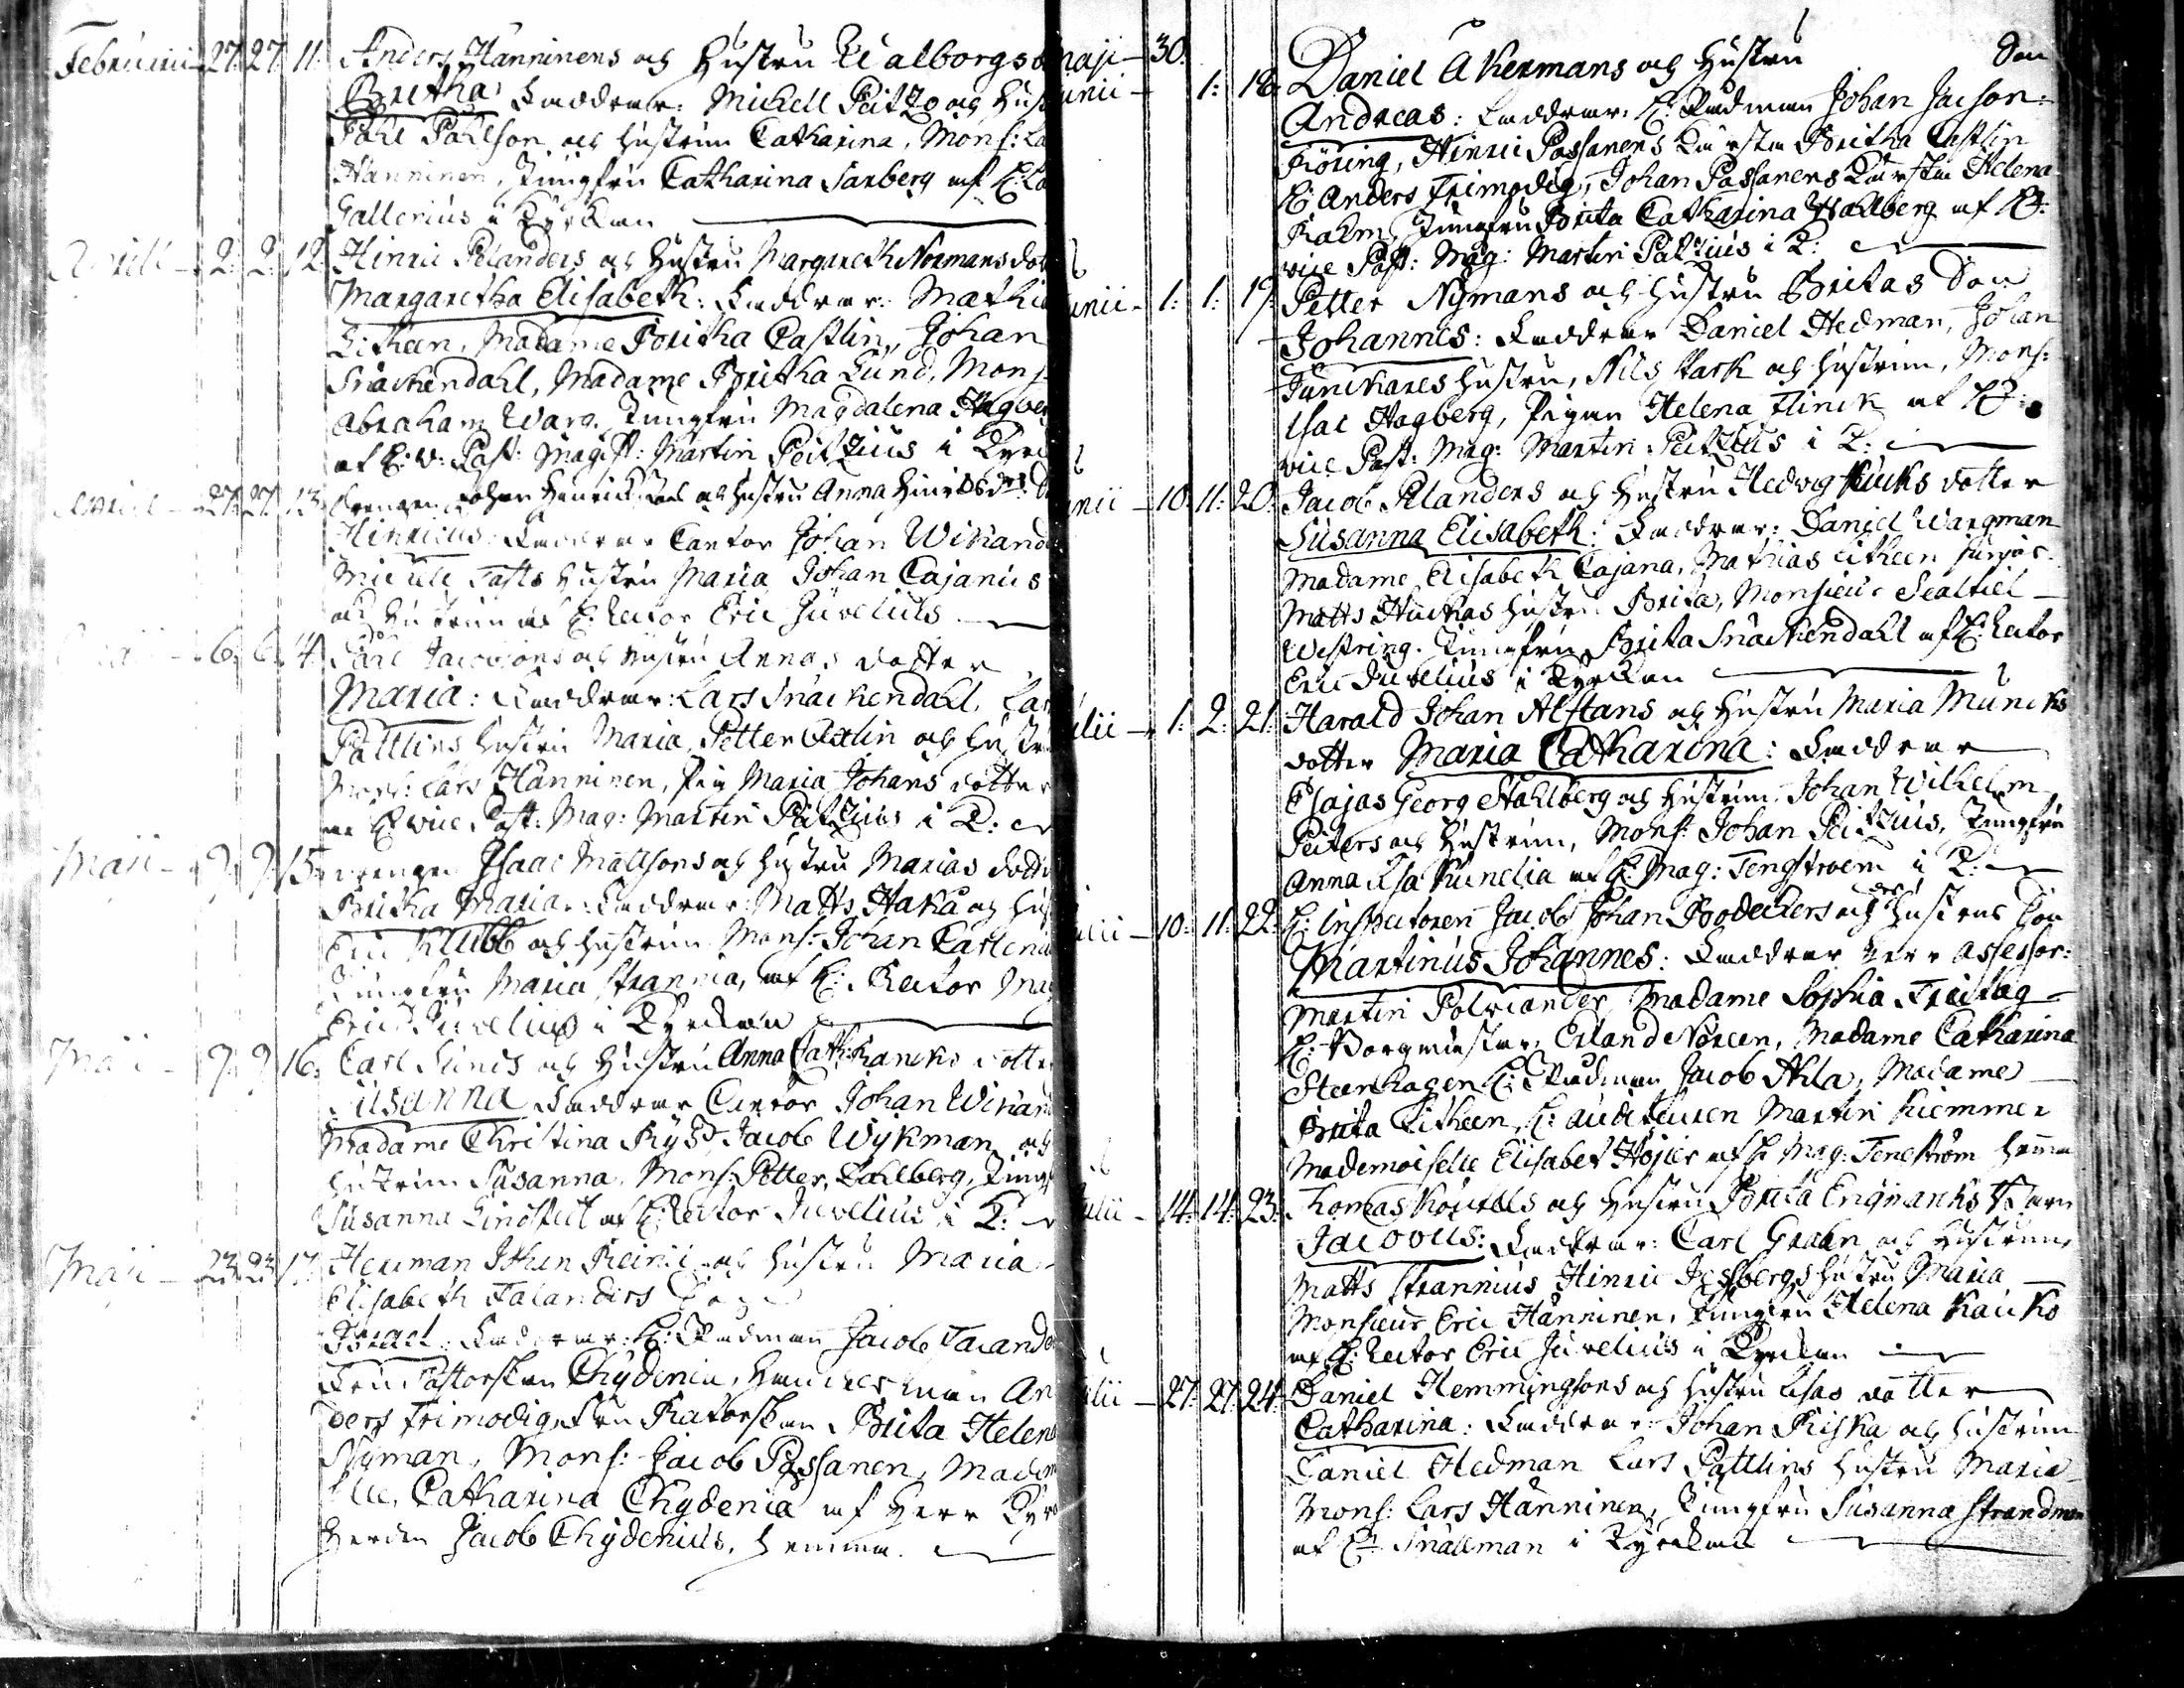 Februarii - 27. 27. 11. Anders Hänninens och Hustru Walborgs
Bretha: Faddrar: Michell Peitzo och Hust
Påhl Påhlson och hustrun Catharina, Mons:
Hänninen, Jungfru Catharina Sanberg af H:
Gallenius i Kyrckan
Aprill - 2. 2. 12. Hinric Pelanders och Hustru Margareth Normans dot
Margaretha Elisabeth: Faddrar: Mathi
Litheen, Madame Britha Castlin, Johan
Snäckendahl, Madame Britha Lund, Mons
Abraham Warg, Jungfru Magdalena Hagber
af H: v: Past: Magist: Martin Peitzius i Kyrc
Aprill - 27. 27. 13. Drengen Johan Henrickson och hustru Anna Hinricsdr:
Hinricus: Faddrar Cantor Johan Wikand
Michell Tasts Hustru Maria Johan Cajanus
och hustrun af H: Rector Eric Juvelius
6. 6. 14. Påhl Jacobsons och hustru Annas dotter
Maria: Faddrar: Lars Snäckendahl, Lar
Pattlins hustru Maria, Petter Axlin och hustr
Mons: Lars Hänninen, Pig Maria Johans dotter
af H: vice Past: Mag: Martin Peitzius i K:
Maji - 9. 9. 15. Drengen Isaac Mattsons och hustru Marias dott
Britha Maria: Faddrar: Matts Haka och hus
Eric Klubb och hustrun Mons: Johan Carlen
Jungfru Maria Strannia, af H: Rector Ma
Eric Juvelius i Kyrckan
Maji - 9. 9. 16. Carl Sunds och Hustru Anna Cath: Kancks dotte
Susanna Faddrar Cantor Johan Wikand
Madame Christina Ryss, Jacob Wykman och
hustrun Susanna, Mons: Petter Dahlberg, Jung
Susanna Lindstedt af H: Rector Juvelius i K:
Maji - 23. 23. 17. Herman Johan Reinii och hustru Maria
Elisabeth Falanders Son
Israel: Faddrar: H: Rådman Jacob Faland
Fru Pastorskan Chydenia, Handelsman An
ders Frimodig, Fru Rectorskan Brita Helena
Nyman, Mons: Jacob Passanen, Madem
selle Catharina Chydenia af Herr Kyrc
herden Jacob Chydenius, hemma.
Maji - 30.
Junii - 1: 18. Daniel Åkermans och Hustru Son
Andreas: Faddrar: H: Rådman Johan Jacson
Röring, Hinric Passanens Käresta Britha Castlin
H: Anders Frimodig, Johan Passanens Käresta Helena
Rahm, Jungfru Brita Catharina Stahlberg af H:
vice Past: Mag: Martin Peitzius i K:
Junii - 1: 1: 19. Petter Nymans och Hustru Britas Son
Johannes: Faddrar Daniel Hedman, Johan
Junckares hustru, Nils Stark och hustrun, Mons:
Isac Hagberg, Pigan Helena Flinck af H:
vice Past: Mag: Martin Peitzius i K:
Junii - 10: 11: 20: Jacob Pelanders och Hustru Hedvig Kucks dotter
Susanna Elisabeth: Faddrar: Daniel Wargman
Madame Elisabeth Cajana, Mathias Litheen junior
Matts Huckas hustru Brita, Monsieur Sealtiel
Westring. Jungfru Brita Snäckendahl af H: Rector
Eric Juvelius i Kyrckan
Julii - 1: 2: 21: Harald Johan Alftans och Hustru Maria Muncks
dotter Maria Catharina: Faddrar
Esajas Georg Stahlberg och hustrun, Johan Wilhelm
Peiters och hustrun, Mons: Johan Peitzius, Jungfru
Anna Lisa Kumelia af H: Mag: Tengstroem i K:
Julii - 10: 11: 22: H: Inspectoren Jacob Johan Bodeckers och dess hustrus Son
Martinus Johannes: Faddrar Herr Assessor:
Martin Polviander, Madame Sophia Freitag
H: Borgmästar: Erland Noreen, Madame Catharina
Steenhagen H: Rådman Jacob Ahla, Madame
Brita Litheen, H: Auditeuren Martin Kiemmer
Mademoiselle Elisabet Höijer af H: Mag: Tenström hemma
Julii - 14: 14: 23: Thomas Köykells och hustru Brita Engmanks Barn
Jacobus: Faddrar: Carl Grahn och hustrun,
Matts Strannius, Hinric Jesbergs hustru Maria
Monsieur Eric Hänninen, Jungfru Helena Kauko
af H: Rector Eric Juvelius i Kyrckan
Julii - 27: 27: 24: Daniel Hemmingsons och hustru Lisas dotter
Catharina: Faddrar: Johan Riska och hustrun
Daniel Hedman Lars Pattlins hustru Maria
Mons: Lars Hänninen, Jungfru Susanna Strandman
af H: Snällman i Kyrckan